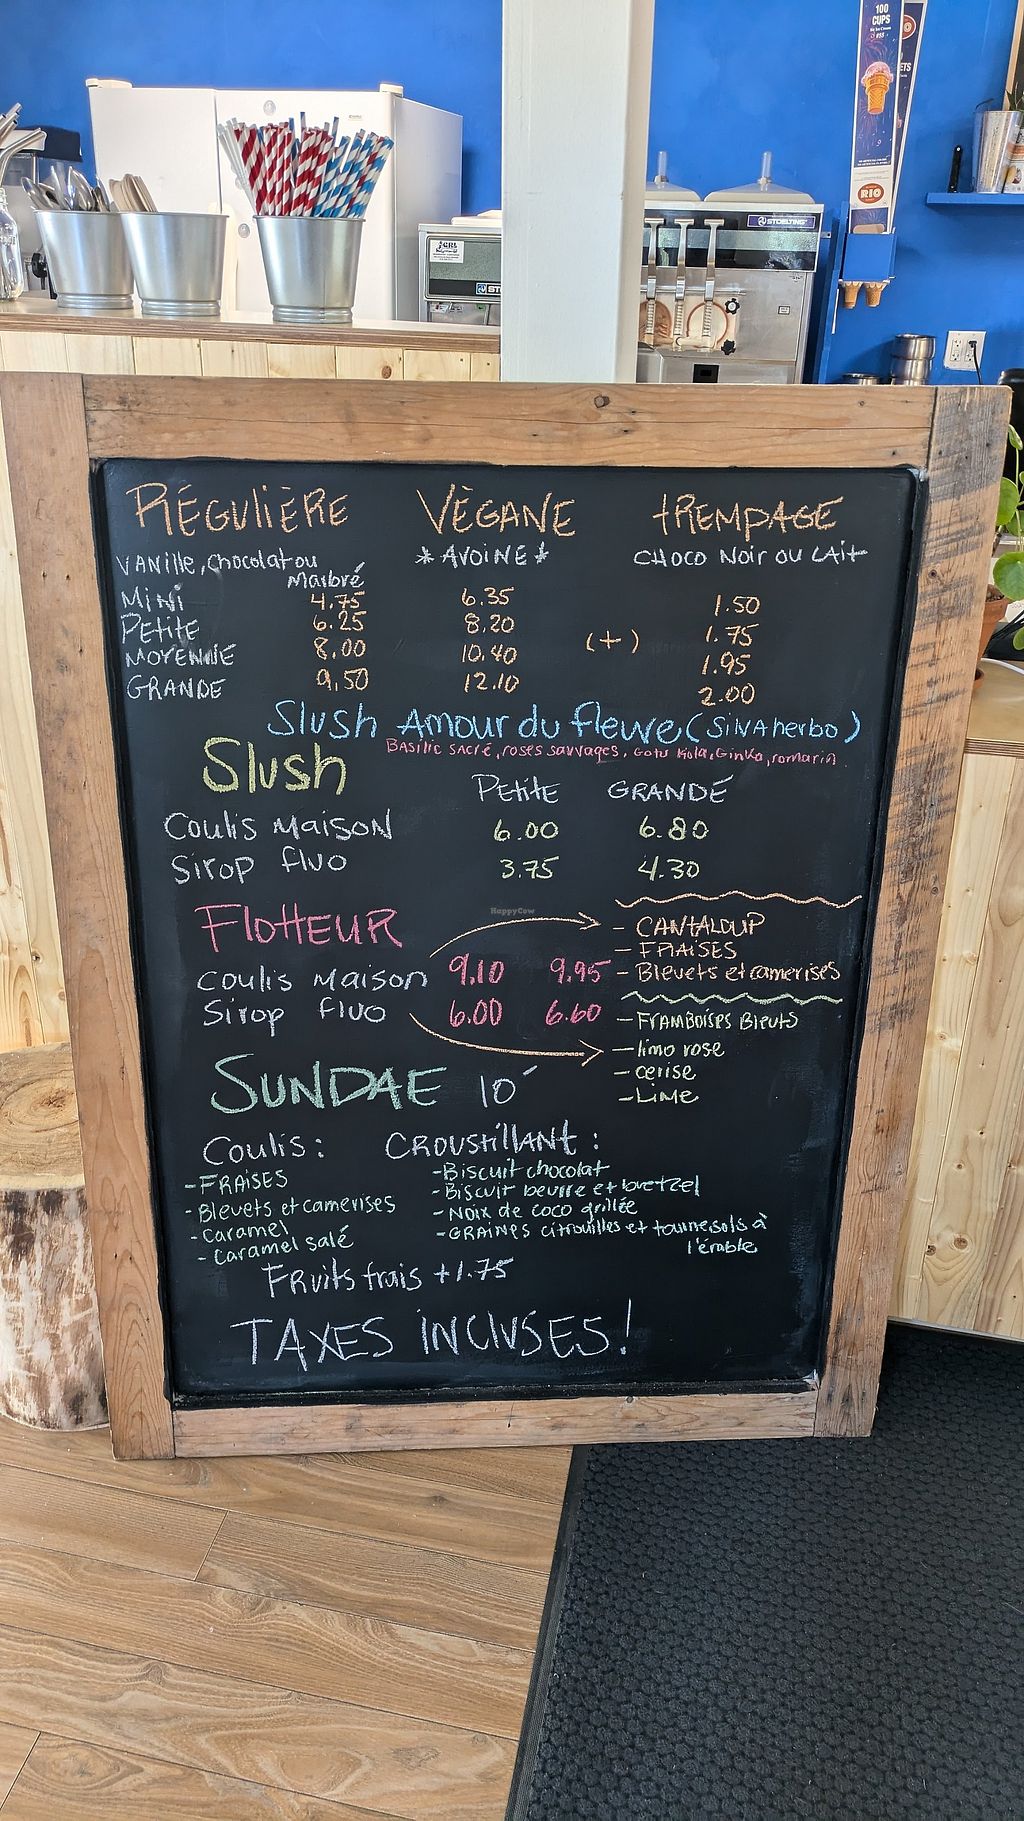 100
CUPS
RIO
STOELTING
RÉGULIÈRE VÈGANE tREMPAGE
VANille, chocolat ou *AVOINE* CHOCO NOIR OU LAit
Marbré
MiNi 4.75 6.35 1.50
PEtitE 6.25 8.20 (+) 1.75
MOYENNE 8.00 10.40 1.95
GRANDE 9.50 12.10 2.00
Slush Amour du fleuve (SilvAherbo)
BASilic sacré, roses sauvages, Gotu Kola, Ginko, romarin
Slush PEtitE GRANDE
Coulis MAISON 6.00 6.80
Sirop fluo 3.75 4.30
FlottEUR
HappyCow
- CANTALOUP
- FRAISES
Coulis MAISON 9.10 9.95 - Bleuets et camerises
Sirop fluo 6.00 6.60 - FRAMBOISES Bleuts
- limo rose
- cerise
- LiME
SUNDAE 10
Coulis: CROUStillANt:
- FRAISES - Biscuit chocolat
- Bleuets et camerises - Biscuit beurre et bretzel
- Caramel - Noix de coco grillée
- Caramel salé - GRAINES citrouilles et tournesols à
l'érable
FRuits frais +1.75
TAXES iNCluSES!